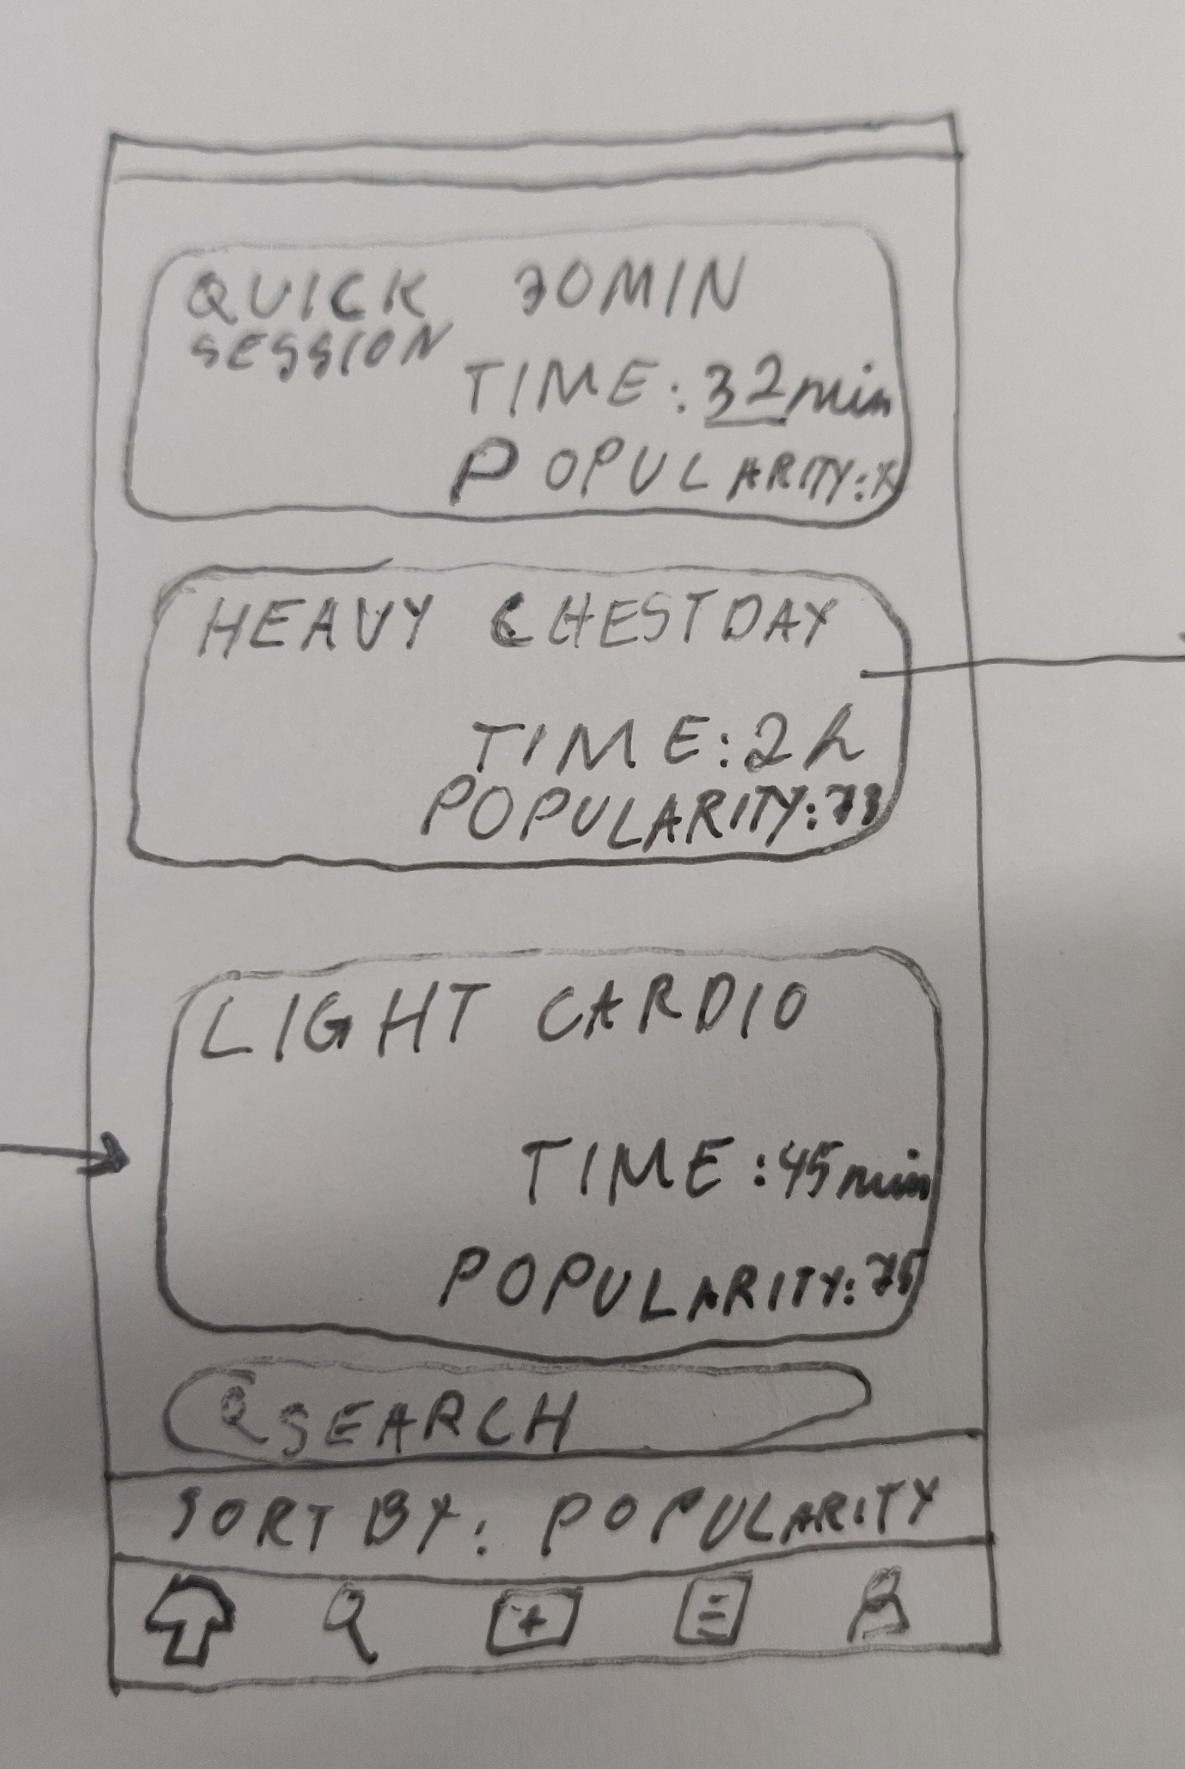 QUICK 30MIN
SESSION
TIME: 32min
POPULARITY:
HEAVY CHESTDAY
TIME: 2h
POPULARITY:
LIGHT CARDIO
TIME: 45min
POPULARITY: 75
SEARCH
SORT BY: POPULARITY